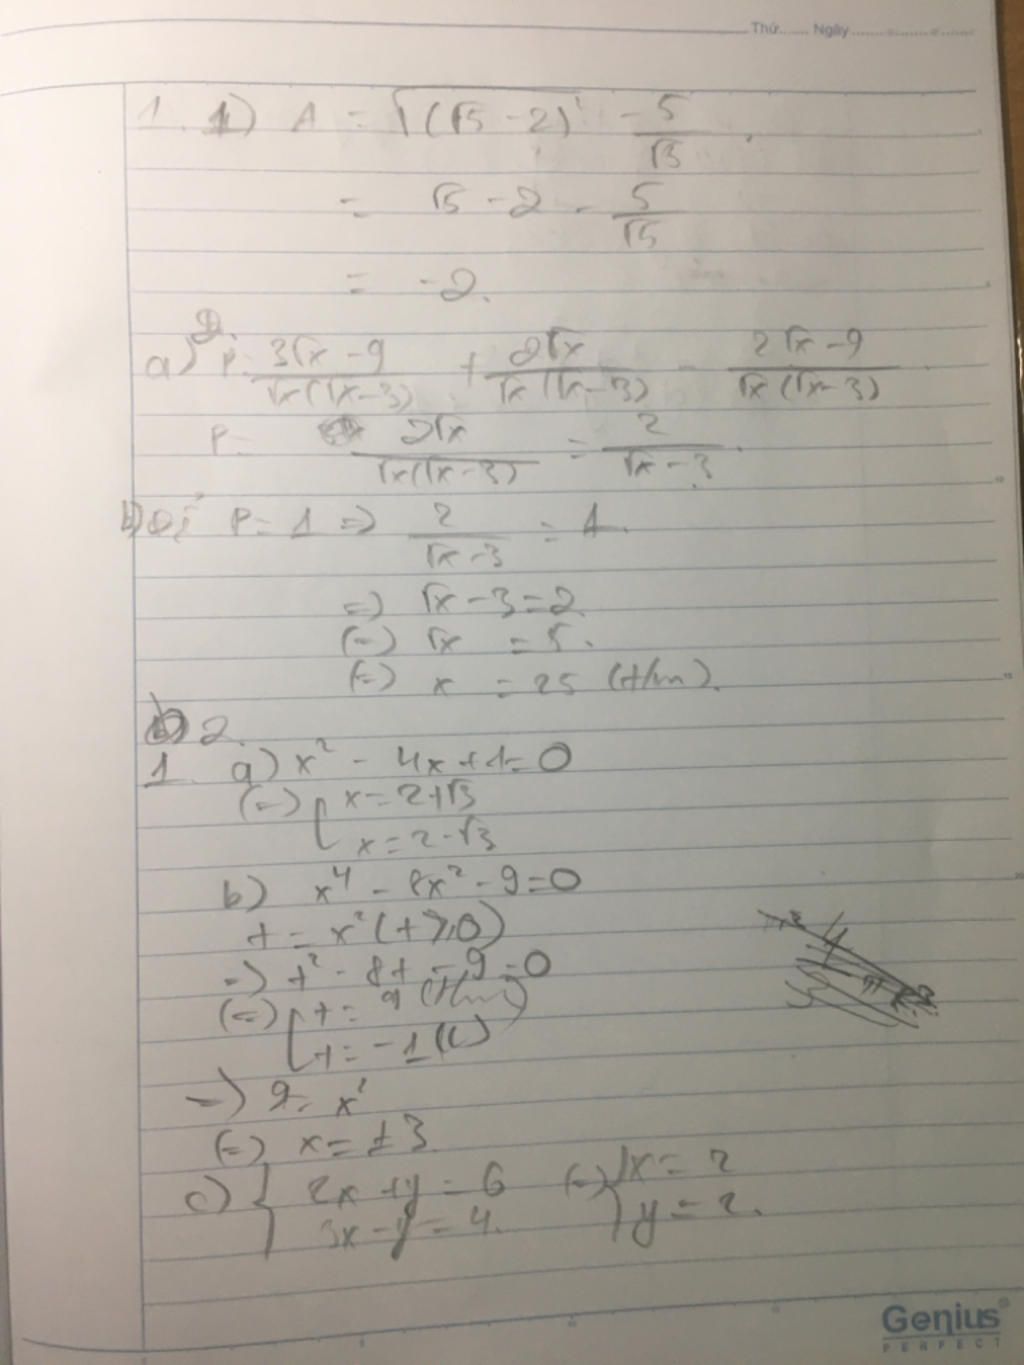 Thứ...... Ngày
1. 1) A = √(√5 - 2)² - 5/√5
= √5 - 2 - 5/√5
= -2.
2.
a) P = (3√x - 9)/(√x(√x - 3)) + 2√x/(√x(√x - 3)) - (2√x - 9)/(√x(√x - 3))
P = 2√x/(√x(√x - 3)) = 2/(√x - 3).
b) Để P = 1 => 2/(√x - 3) = 1.
=> √x - 3 = 2
(=) √x = 5.
(=) x = 25 (t/m).
2.
1. a) x² - 4x + 1 = 0
(=) [ x = 2 + √3
x = 2 - √3
b) x⁴ - 8x² - 9 = 0
t = x² (t ≥ 0)
=> t² - 8t - 9 = 0
(=) [ t = 9 (t/m)
t = -1 (L)
=> 9 = x²
(=) x = ±3
c) { 2x + y = 6 (=) { x = 2
3x - y = 4. y = 2.
Genius
PERFECT